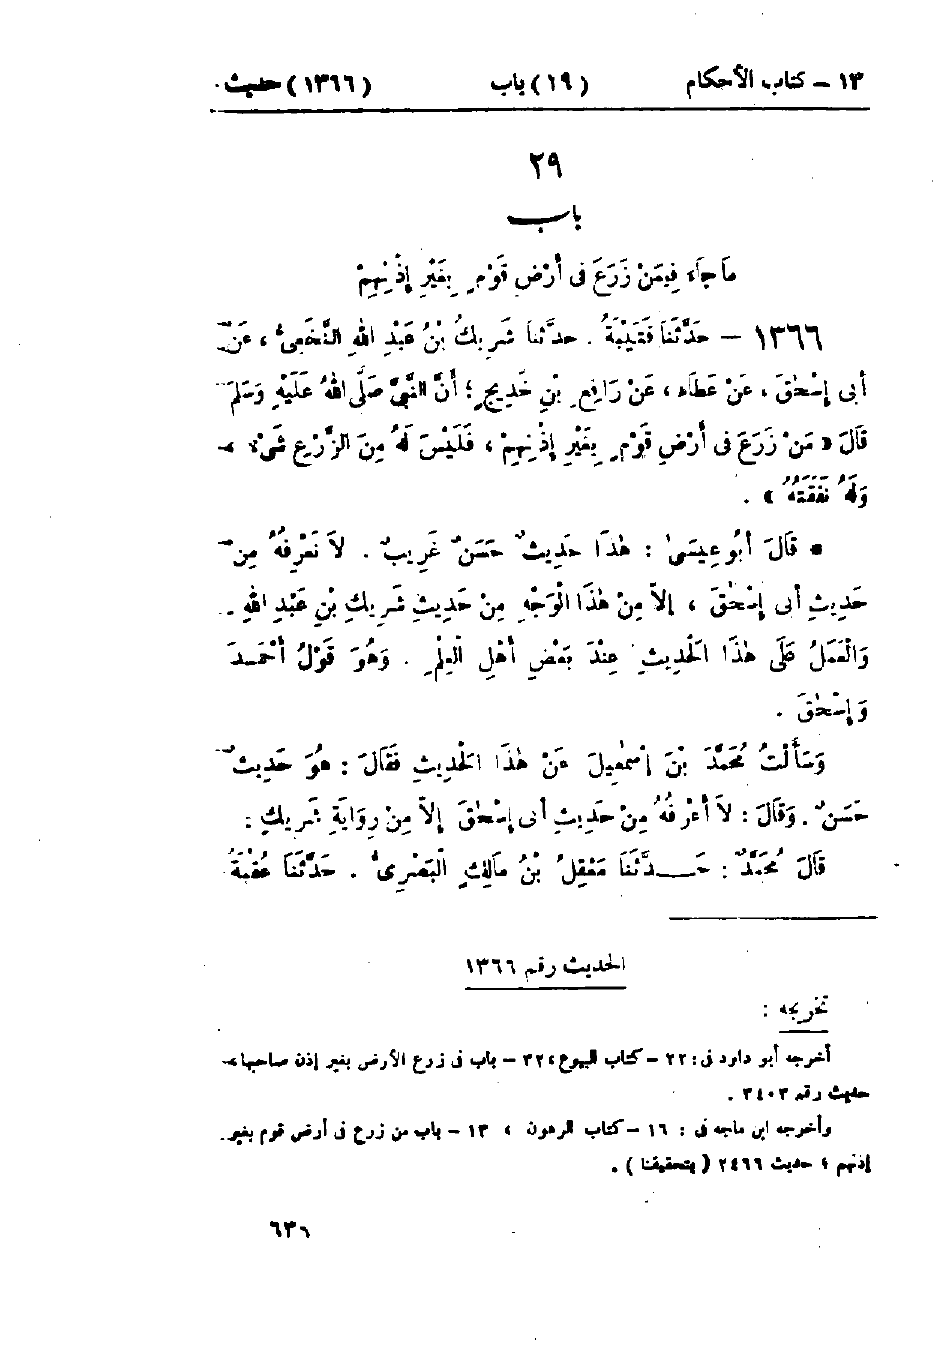 ١٣ – كتاب الأحكام (١٩) باب (١٣٦٦) حديث
٢٩
باب
مَا جَاءَ فِيمَنْ زَرَعَ فى أَرْضِ قَوْمٍ بِغَيْرِ إِذْنِهِمْ
١٣٦٦ – حَدَّثَنَا قُتَيْبَةُ . حَدَّثَنَا شَرِيكُ بْنُ عَبْدِ اللهِ النَّخَعِىُّ ، عَنْ
أَبِى إِسْحٰقَ ، عَنْ عَطَاءٍ ، عَنْ رَافِعِ بْنِ خَدِيجٍ ؛ أَنَّ النَّبِىَّ صَلَّى اللهُ عَلَيْهِ وَسَلَّمَ
قَالَ « مَنْ زَرَعَ فى أَرْضِ قَوْمٍ بِغَيْرِ إِذْنِهِمْ ، فَلَيْسَ لَهُ مِنَ الزَّرْعِ شَىْءٌ ،
وَلَهُ نَفَقَتُهُ » .
• قَالَ أَبُو عِيسَىٰ : هٰذَا حَدِيثٌ حَسَنٌ غَرِيبٌ . لاَ نَعْرِفُهُ مِنْ
حَدِيثِ أَبِى إِسْحٰقَ ، إِلاَّ مِنْ هٰذَا الْوَجْهِ مِنْ حَدِيثِ شَرِيكِ بْنِ عَبْدِ اللهِ .
وَالْعَمَلُ عَلَى هٰذَا الْحَدِيثِ عِنْدَ بَعْضِ أَهْلِ الْعِلْمِ . وَهُوَ قَوْلُ أَحْمَـدَ
وَإِسْحٰقَ .
وَسَأَلْتُ مُحَمَّدَ بْنَ إِسْمٰعِيلَ عَنْ هٰذَا الْحَدِيثِ فَقَالَ : هُوَ حَدِيثٌ
حَسَنٌ . وَقَالَ : لاَ أَعْرِفُهُ مِنْ حَدِيثِ أَبِى إِسْحٰقَ إِلاَّ مِنْ رِوَايَةِ شَرِيكٍ :
قَالَ مُحَمَّدٌ : حَـــدَّثَنَا مَعْقِلُ بْنُ مَالِكٍ الْبَصْرِىُّ . حَدَّثَنَا عُقْبَةُ
الحديث رقم ١٣٦٦
تخريجه :
أخرجه أبو داود فى : ٢٢ – كتاب البيوع ، ٣٢ – باب فى زرع الأرض بغير إذن صاحبها ،
حديث رقم ٣٤٠٣ .
وأخرجه ابن ماجه فى : ١٦ – كتاب الرهون ، ١٣ – باب من زرع فى أرض قوم بغير
إذنهم ، حديث ٢٤٦٦ ( بتحقيقنا ) .
٦٣٦